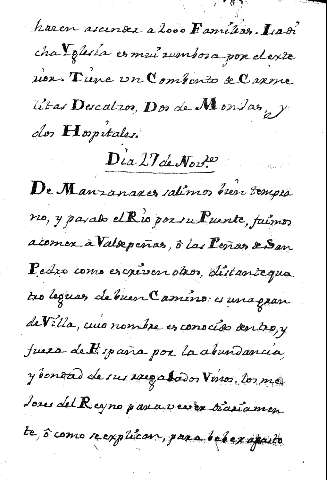 hacen ascender a 2000 Familias. La di
cha Yglesia es mui rumbosa por el exte
rior. Tiene un Combento de Carme
litas Descalzos, Dos de Monjas, y
dos Hospitales.
Dia 27 de Nov.re
De Manzanares salimos bien tempra
no, y pasado el Rio por su Puente, fuimos
a comer à Valdepeñas, ô las Peñas de San
Pedro como escriven otros, distante qua
tro leguas de buen Camino: es una gran
de Villa, cuio nombre es conocido dentro, y
fuera de España por la abundancia,
y bondad de sus regalados Vinos, los me
lores del Reyno para vever diariamen
te, ô como se explican, para beber a pasto